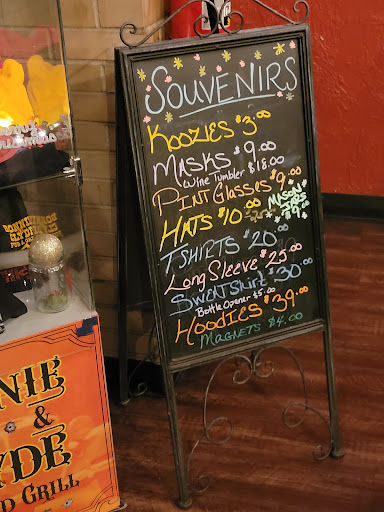 SOUVENIRS
KOOZIES $3.00
MASKS $9.00
Wine Tumbler $18.00
PINT GLASSES $9.00
HATS $10.00
MASON
JARS
$9
TSHIRTS $20.00
Long Sleeve $25.00
SWEATShirt $30.00
Bottle Opener $5.00
HOODIES $39.00
MAGNETS $4.00
NIE
&
YDE
D GRILL